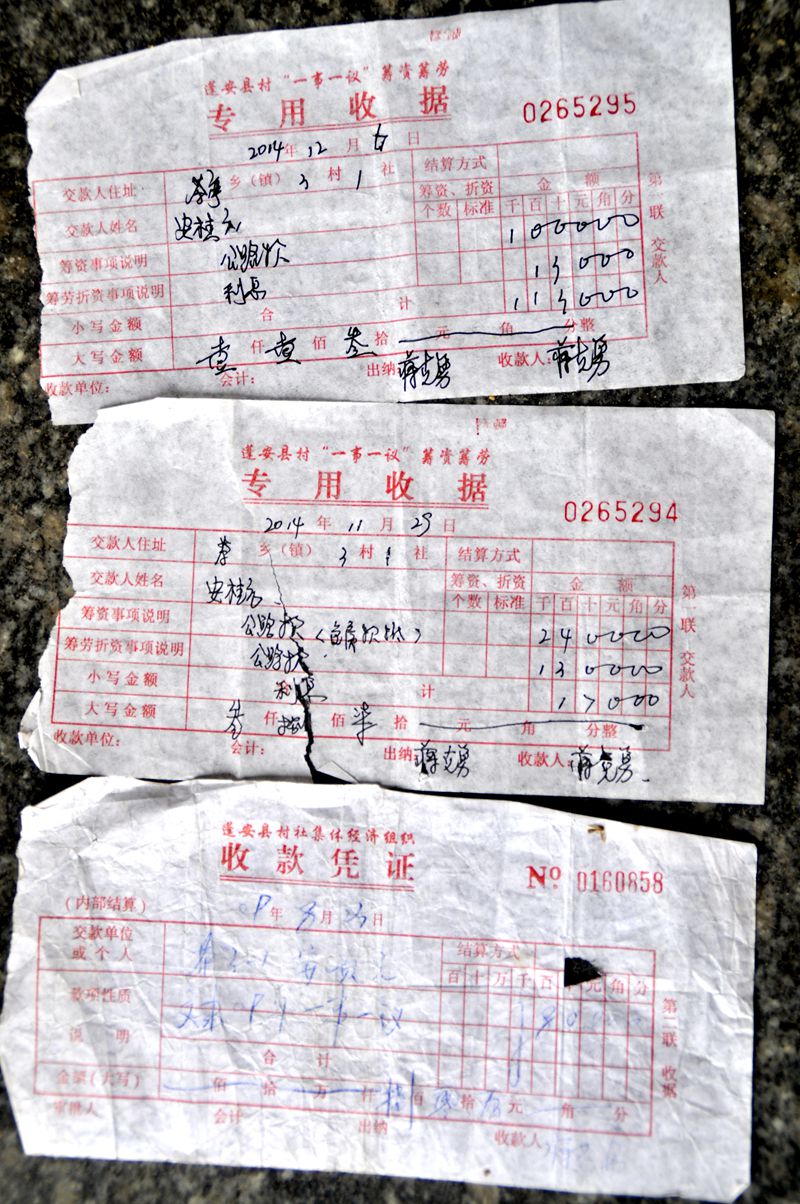 蓬安县村“一事一议”筹资筹劳
专用收据
0265295
2014年12月6日
交款人住址 乡(镇)3村1社 结算方式
筹资、折资 金额
交款人姓名 安桂元 个数 标准 千百十元角分
筹资事项说明 公路款 100000
筹劳折资事项说明 利息 13000
小写金额 合计 113000
大写金额 壹仟壹佰叁拾元角分整
收款单位: 会计: 出纳 蒋克勇 收款人: 蒋克勇
第二联 交款人
蓬安县村“一事一议”筹资筹劳
专用收据
0265294
2014年11月29日
交款人住址 乡(镇)3村1社 结算方式
筹资、折资 金额
交款人姓名 安桂元 个数 标准 千百十元角分
筹资事项说明 公路款 240000
筹劳折资事项说明 公路款 130000
小写金额 利息 计 17000
大写金额 叁仟佰柒拾元角分整
收款单位: 会计: 出纳 蒋克勇 收款人: 蒋克勇
第二联 交款人
蓬安县村社集体经济组织
收款凭证
No 0160858
(内部结算) 年月日
交款单位或个人 结算方式
百十万千百十元角分
款项性质 一事一议
说明
合计
金额(大写) 佰拾万仟佰拾元角分
审批人 会计 出纳 收款人
第二联 收据